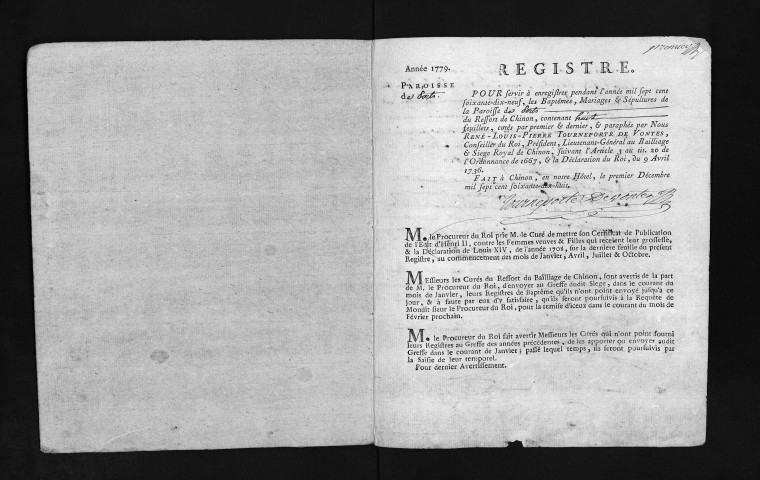 Année 1779.
REGISTRE.
PAROISSE
de Ports.
POUR servir à enregistrer pendant l'année mil sept cent
soixante-dix-neuf, les Baptêmes, Mariages & Sépultures de
la Paroisse de Ports
du Ressort de Chinon, contenant huit
feuillets, cotés par premier & dernier, & paraphés par Nous
RENÉ-LOUIS-PIERRE TOURNEPORTE DE VONTES,
Conseiller du Roi, Président, Lieutenant-Général au Bailliage
& Siege Royal de Chinon, suivant l'Article 3 au tit. 20 de
l'Ordonnance de 1667, & la Déclaration du Roi, du 9 Avril
1736.
FAIT à Chinon, en notre Hôtel, le premier Décembre
mil sept cent soixante-dix-huit.
Tourneporte Devontes
M. le Procureur du Roi prie M. le Curé de mettre son Certificat de Publication
de l'Edit d'Henri II, contre les Femmes veuves & Filles qui recelent leur grossesse,
& la Déclaration de Louis XIV, de l'année 1708, sur la derniere feuille du présent
Registre, au commencement des mois de Janvier, Avril, Juillet & Octobre.
MEssieurs les Curés du Ressort du Bailliage de Chinon, sont avertis de la part
de M. le Procureur du Roi, d'envoyer au Greffe dudit Siege, dans le courant du
mois de Janvier, leurs Registres de Baptême qu'ils n'ont point envoyé jusqu'à ce
jour, & à faute par eux d'y satisfaire, qu'ils seront poursuivis à la Requête de
Mondit sieur le Procureur du Roi, pour la remise d'iceux dans le courant du mois de
Février prochain.
M. le Procureur du Roi fait avertir Messieurs les Curés qui n'ont point fourni
leurs Registres au Greffe des années précédentes, de les apporter ou envoyer audit
Greffe dans le courant de Janvier; passé lequel temps, ils seront poursuivis par
la Saisie de leur temporel.
Pour dernier Avertissement.